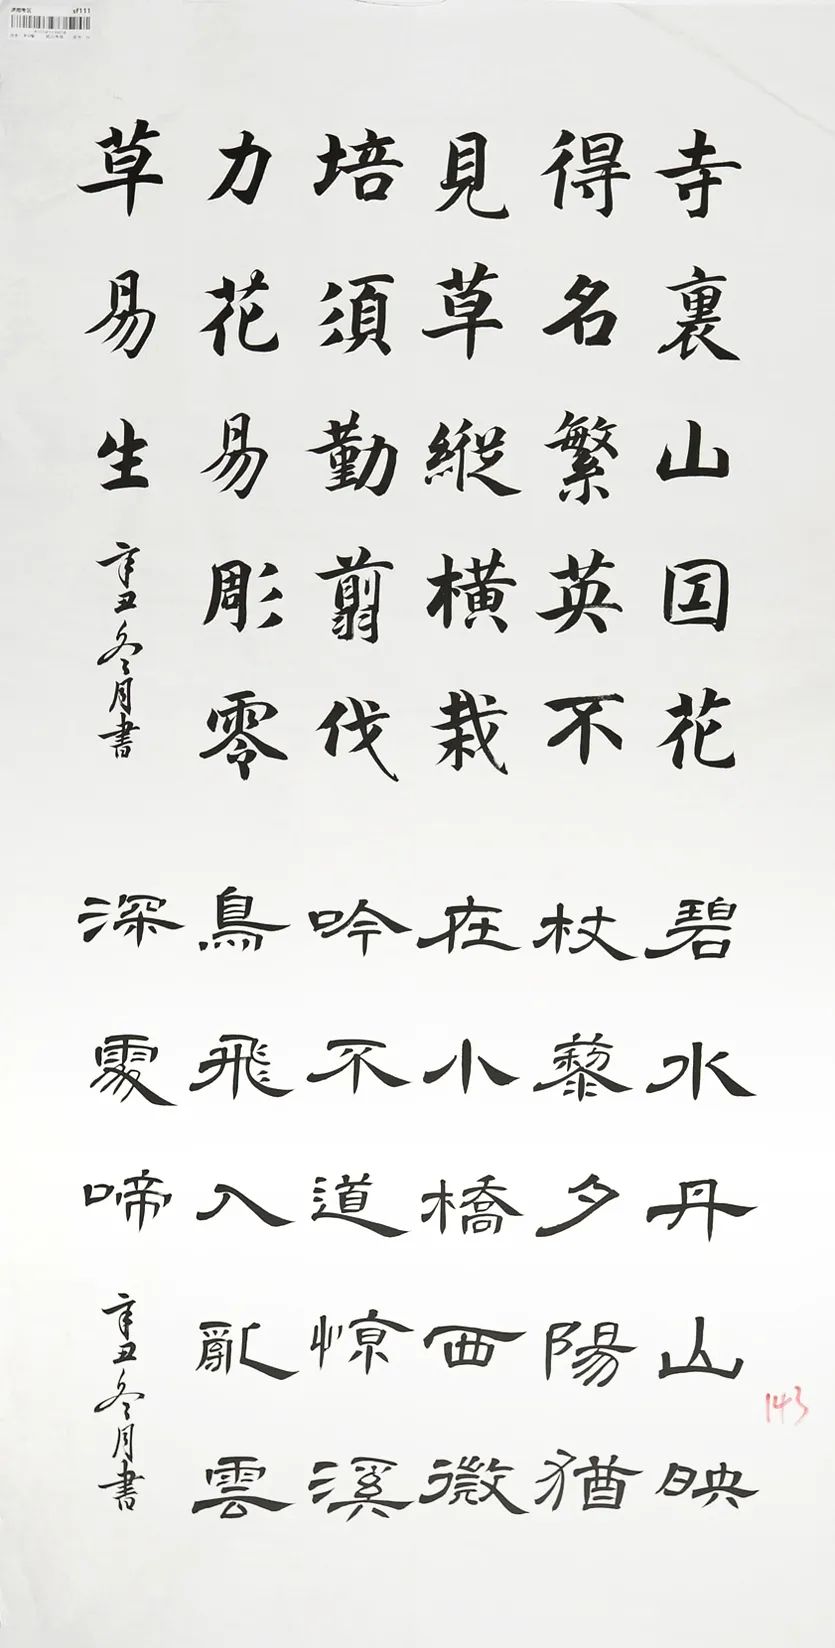 寺裏山囙花
得名繁英不
見草縱橫栽
培須勤剪伐
力花易彫零
草易生
辛丑冬月書
碧水丹山映
杖藜夕陽猶
在小橋西微
吟不道惊溪
鳥飛入亂雲
深處啼
辛丑冬月書
143
sf111